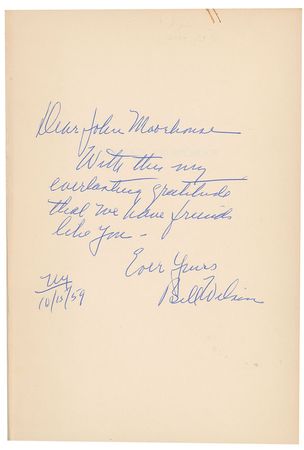 Dear John Moorhouse
With this my
everlasting gratitude
that we have friends
like you -
Ever Yours
Bill Wilson
NY
10/15/59